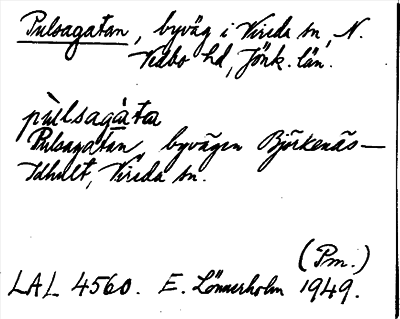 Pulsagatan, byväg i Vireda sn, N.
Vedbo hd, Jönk. län.
pùlsagàta
Pulsagatan, byvägen Björkenäs—
Idhult, Vireda sn.
(Pm.)
LAL 4560. E. Lönnerholm 1949.